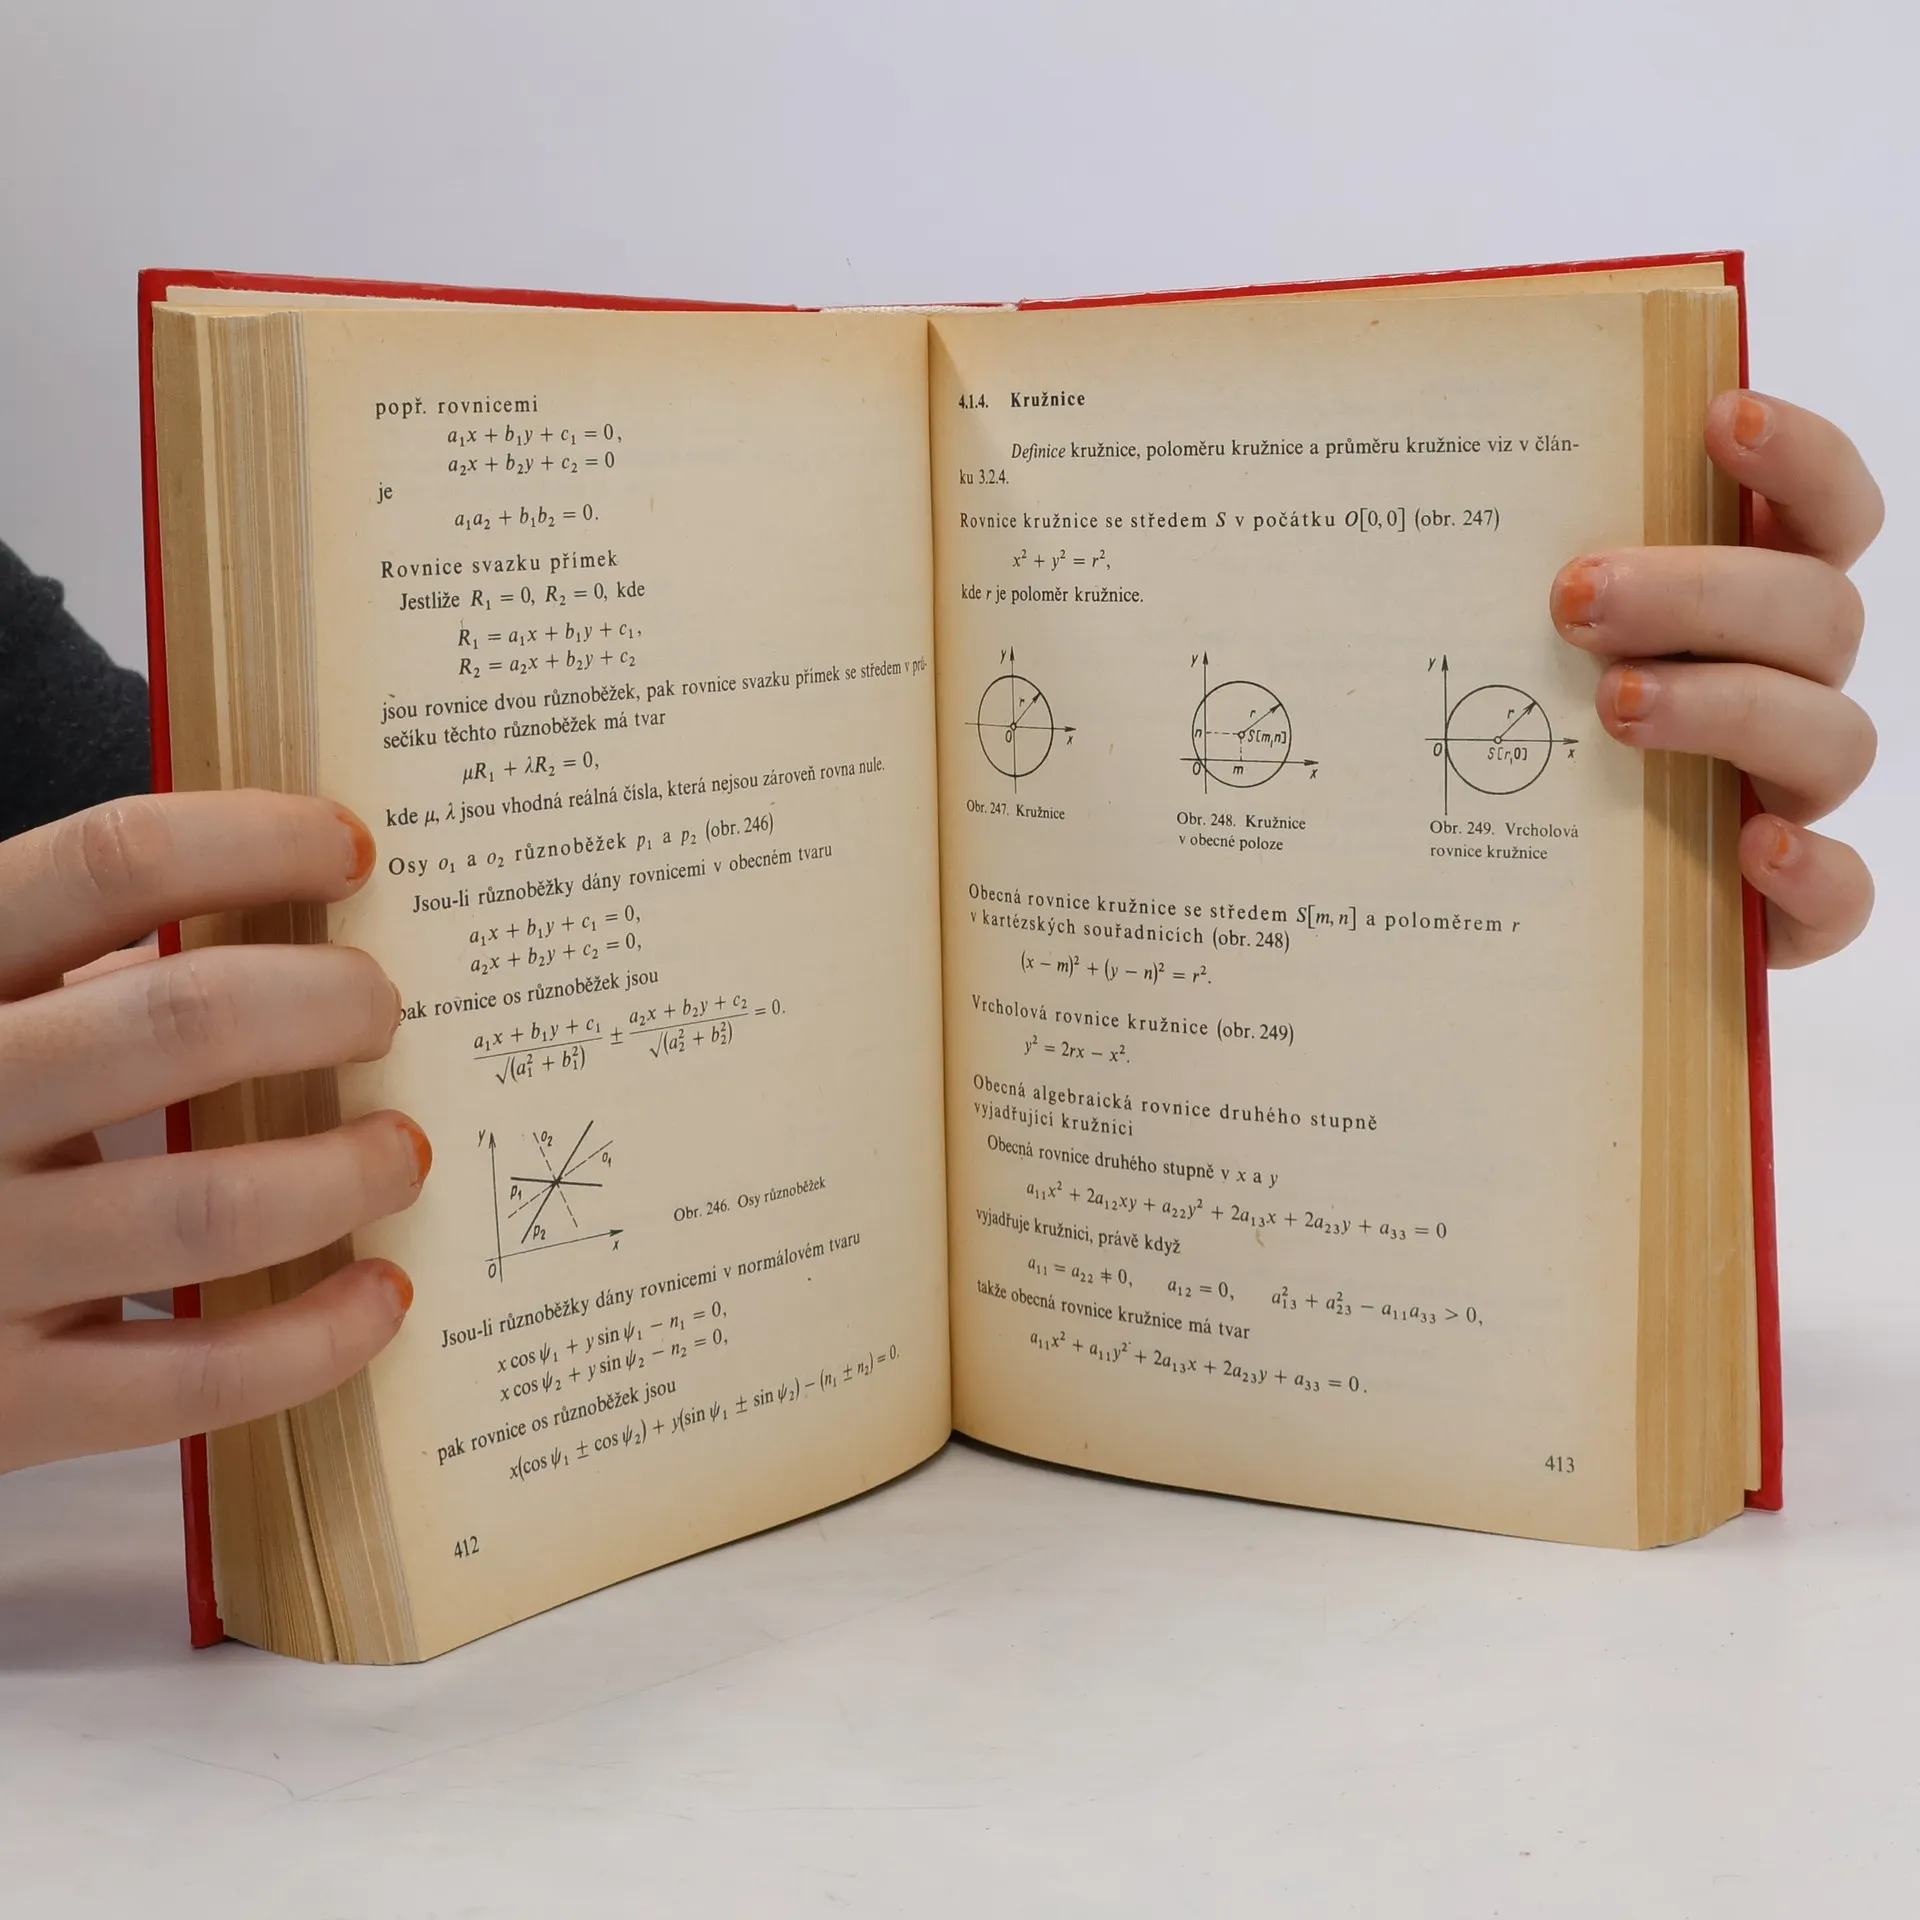 popř. rovnicemi
a₁x + b₁y + c₁ = 0,
a₂x + b₂y + c₂ = 0
je
a₁a₂ + b₁b₂ = 0.
Rovnice svazku přímek
Jestliže R₁ = 0, R₂ = 0, kde
R₁ = a₁x + b₁y + c₁,
R₂ = a₂x + b₂y + c₂
jsou rovnice dvou různoběžek, pak rovnice svazku přímek se středem v prů-
sečíku těchto různoběžek má tvar
μR₁ + λR₂ = 0,
kde μ, λ jsou vhodná reálná čísla, která nejsou zároveň rovna nule.
Osy o₁ a o₂ různoběžek p₁ a p₂ (obr. 246)
Jsou-li různoběžky dány rovnicemi v obecném tvaru
a₁x + b₁y + c₁ = 0,
a₂x + b₂y + c₂ = 0,
pak rovnice os různoběžek jsou
(a₁x + b₁y + c₁)/√(a₁² + b₁²) ± (a₂x + b₂y + c₂)/√(a₂² + b₂²) = 0.
y o₂ o₁
p₁
p₂
0 x
Obr. 246. Osy různoběžek
Jsou-li různoběžky dány rovnicemi v normálovém tvaru
x cos ψ₁ + y sin ψ₁ − n₁ = 0,
x cos ψ₂ + y sin ψ₂ − n₂ = 0,
pak rovnice os různoběžek jsou
x(cos ψ₁ ± cos ψ₂) + y(sin ψ₁ ± sin ψ₂) − (n₁ ± n₂) = 0.
412
4.1.4. Kružnice
Definice kružnice, poloměru kružnice a průměru kružnice viz v člán-
ku 3.2.4.
Rovnice kružnice se středem S v počátku O[0,0] (obr. 247)
x² + y² = r²,
kde r je poloměr kružnice.
y r 0 x
Obr. 247. Kružnice
y r n S[m,n] 0 m x
Obr. 248. Kružnice
v obecné poloze
y r 0 S[r,0] x
Obr. 249. Vrcholová
rovnice kružnice
Obecná rovnice kružnice se středem S[m, n] a poloměrem r
v kartézských souřadnicích (obr. 248)
(x − m)² + (y − n)² = r².
Vrcholová rovnice kružnice (obr. 249)
y² = 2rx − x².
Obecná algebraická rovnice druhého stupně
vyjadřující kružnici
Obecná rovnice druhého stupně v x a y
a₁₁x² + 2a₁₂xy + a₂₂y² + 2a₁₃x + 2a₂₃y + a₃₃ = 0
vyjadřuje kružnici, právě když
a₁₁ = a₂₂ ≠ 0, a₁₂ = 0, a₁₃² + a₂₃² − a₁₁a₃₃ > 0,
takže obecná rovnice kružnice má tvar
a₁₁x² + a₁₁y² + 2a₁₃x + 2a₂₃y + a₃₃ = 0.
413